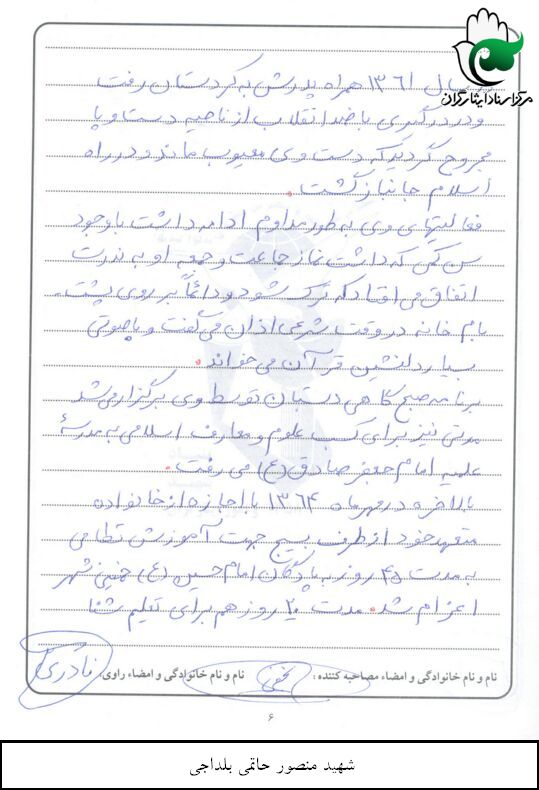 مرکز اسناد ایثارگران
در سال ۱۳۶۱ همراه پدرش به کردستان رفت
و در درگیری با ضد انقلاب از ناحیه دست و پا
مجروح گردید که دست وی معیوب ماند و در راه
اسلام جانباز گشت.
فعالیتهای وی به طور مداوم ادامه داشت با وجود
سن کمی که داشت نماز جماعت و جمعه او به ندرت
اتفاق می افتاد که ترک شود و دائماً بر روی پشت
بام خانه در وقت شرعی اذان می گفت و با صوتی
بسیار دلنشین قرآن می خواند.
برنامه صبحگاهی دبستان توسط وی برگزار می شد
مدتی نیز برای کسب علوم و معارف اسلامی به مدرسهٔ
علمیه امام جعفر صادق (ع) می رفت.
بالاخره در مهر ماه ۱۳۶۴ با اجازه از خانواده
متعهد خود از طرف بسیج جهت آموزش نظامی
به مدت ۴۵ روز به پادگان امام حسین (ع) خمینی شهر
اعزام شد. مدت ۲۰ روز هم برای تعلیم شنا
نام و نام خانوادگی و امضاء مصاحبه کننده : نام و نام خانوادگی و امضاء راوی: نادری
۶
شهید منصور حاتمی بلداجی